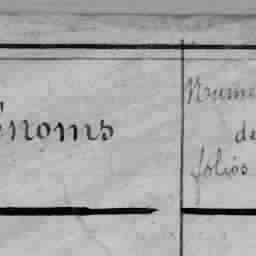 énoms
Nume
de
folios